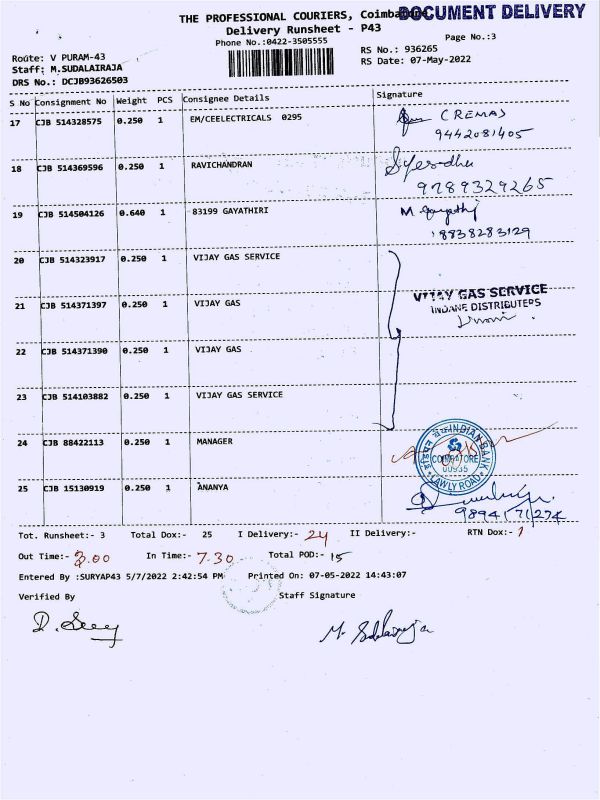 DOCUMENT DELIVERY
THE PROFESSIONAL COURIERS, Coimbatore
Delivery Runsheet - P43
Phone No.:0422-3505555
Page No.:3
Route: V PURAM-43
RS No.: 936265
Staff: M.SUDALAIRAJA
RS Date: 07-May-2022
DRS No.: DCJB93626503
S No Consignment No Weight PCS Consignee Details Signature
17 CJB 514328575 0.250 1 EM/CEELECTRICALS 0295 CREMAS
9442081405
18 CJB 514369596 0.250 1 RAVICHANDRAN
9789329265
19 CJB 514504126 0.640 1 83199 GAYATHIRI M. Gayathj
18838283129
20 CJB 514323917 0.250 1 VIJAY GAS SERVICE
21 CJB 514371397 0.250 1 VIJAY GAS
VIJAY GAS SERVICE
INDANE DISTRIBUTERS
22 CJB 514371390 0.250 1 VIJAY GAS
23 CJB 514103882 0.250 1 VIJAY GAS SERVICE
24 CJB 88422113 0.250 1 MANAGER
इंडियन बैंक INDIAN BANK
COIMBATORE
00935
LAWLY ROAD
25 CJB 15130919 0.250 1 ANANYA
9894171274
Tot. Runsheet:- 3 Total Dox:- 25 I Delivery:- 24 II Delivery:- RTN Dox:- 1
Out Time:- 3.00 In Time:- 7.30 Total POD:- 15
Entered By :SURYAP43 5/7/2022 2:42:54 PM Printed On: 07-05-2022 14:43:07
Verified By Staff Signature
M. Sudalairaja